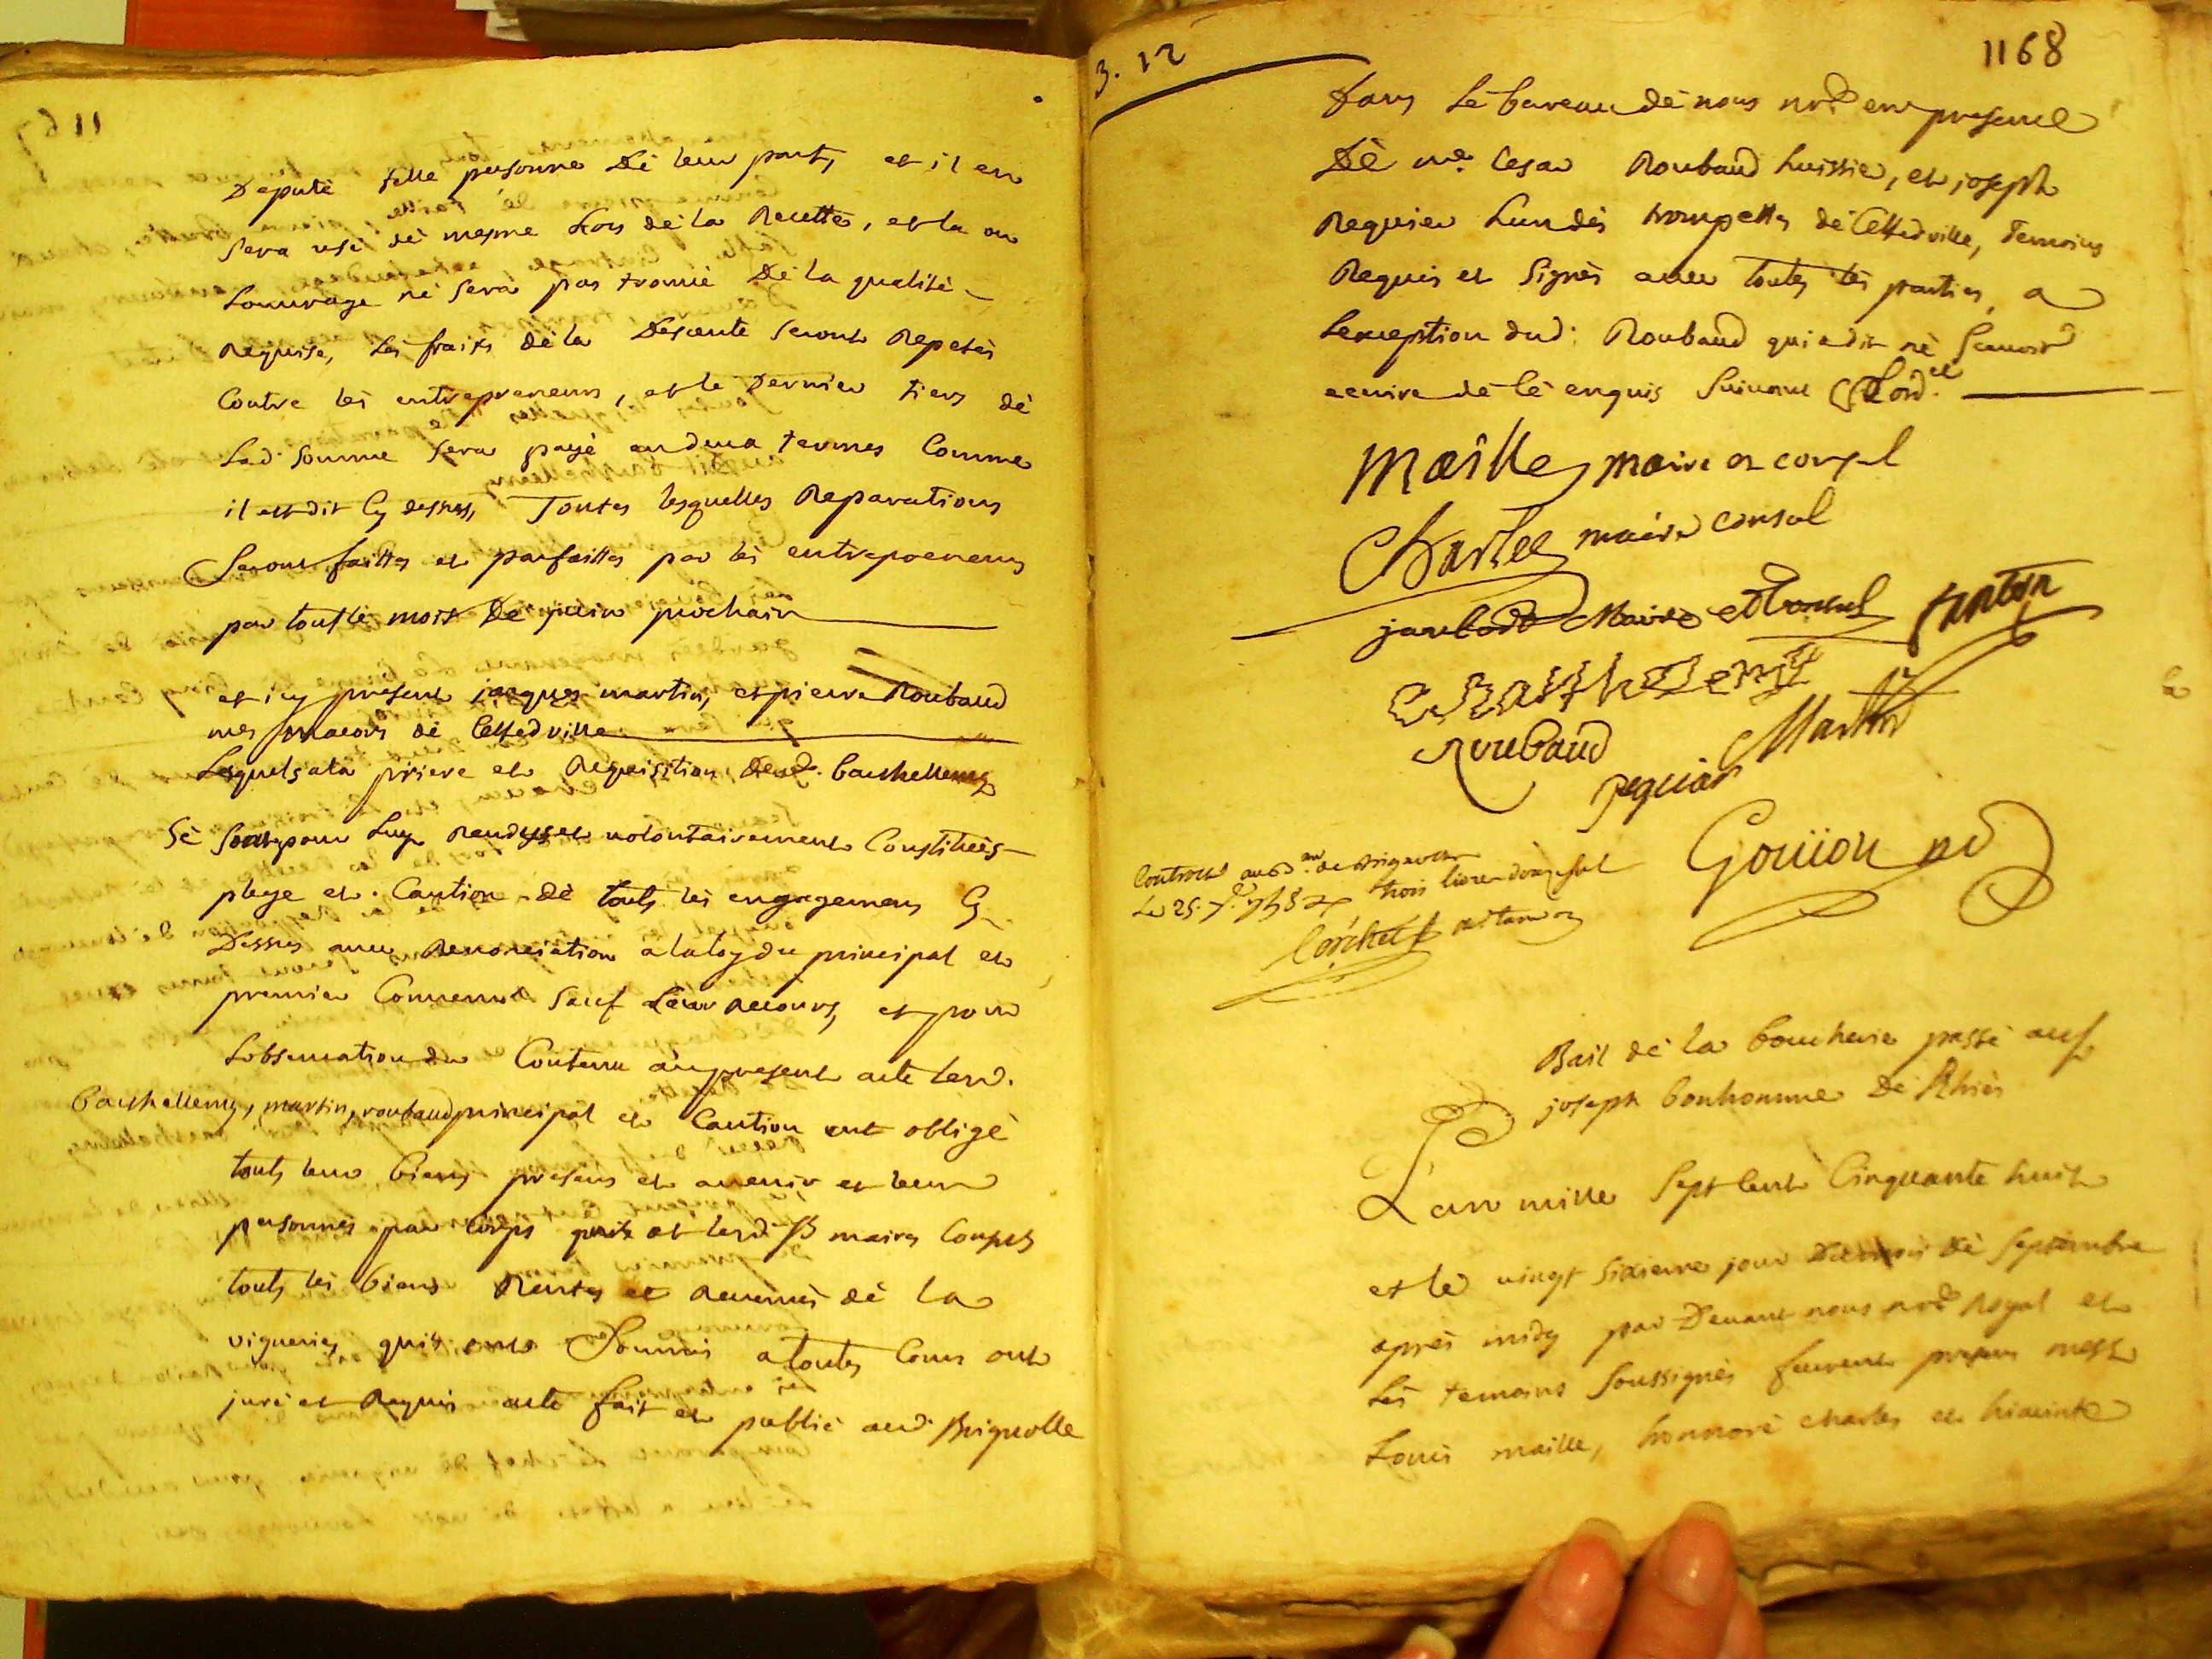 Deputè telle personne Dè leur part, et il en
sera usé dè mesme Lors dè la Recette, et la ou
Louvrage nè sera pas trouvé Dè la qualité
Requise, Lès fraix dè la Descente seront Repetès
Contre lès entrepreneurs, et le Dernier tiers dè
Lad. somme sera payé en deux termes Comme
il est dit Cy dessus, Toutes lesquelles Reparations
Seront faittes et parfaittes par lès entrepreneurs
par tout lè mois De juin prochain
et icy present jacques martin, et pierre Roubaud
mes massons dè Cettedville
Lesquels ala priere et Requisition dud. barthellemy
Sè sont pour Luy Rendus et volontairement Constituès
plege et Caution dè touts lès engagemens Cy
Dessus avec Renonciation alaloy du principal et
premier Convenu sauf Leur Recours, et pour
Lobservation du Contenu aupresent acte lesd.
barthellemy, martin, roubaud principal et Caution ont obligé
touts leur biens presens et avenir et leur
personnes par corps et lesd. Srs maires Consuls
touts lès biens Rentes et Revenus dè la
viguerie, quils ont Soumis atoutes Cours ont
juré et Requis acte fait et publié aud. Brignolle
1168
3. 12
dans Lè bureau dè nous nore en presence
Dè me. Cesar Roubaud huissier, et joseph
Requier Lun dès trompettes dè Cettedville, Temoins
Requis et Signès avec toutes lès parties, a
Lexception dud. Roubaud qui a dit nè Scavoir
ecrire dè cè enquis Suivant Lord.ce
Maille maire et consul
Charles maire consul
jaubert Maire et Consul
fanton
Barthelemy
Roubaud
Martin
Requier
Gouiion nore
Controllé au B.au de Brignolle
Le 25. 7.bre 1758 trois livres douze sols
Bail dè la boucherie passé au Sr
joseph bonhomme De Rhiès
Lan mille Sept Cent Cinquante huit
et le vingt Sixieme jour Du mois dè Septembre
après midy par Devant nous nore Royal et
Lès temoins Soussignès furent presens mess.rs
Louis maille, honnoré charles et hiacinte